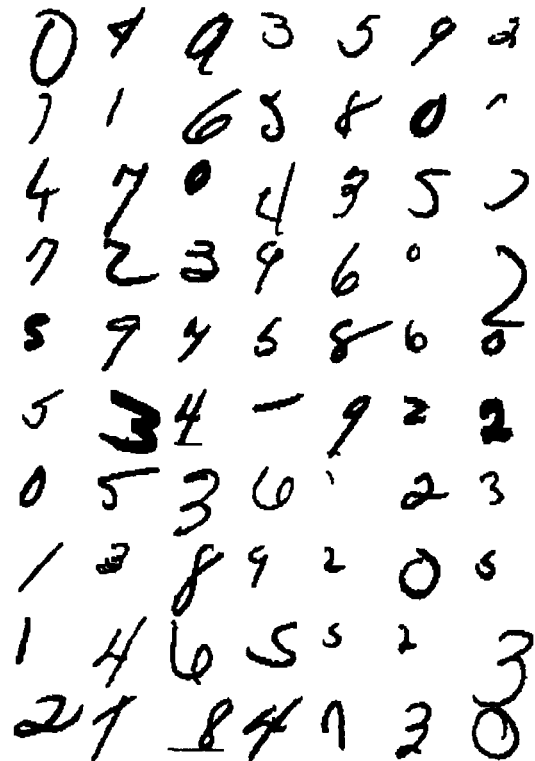 0 9 9 3 5 9 2
7 1 6 5 8 0
4 7 0 4 3 5 7
7 2 3 9 6 0 2
5 9 7 5 8 6 0
5 3 4 9 2 2
0 5 3 6 2 3
1 3 8 9 2 0 5
1 4 6 5 5 2 3
2 7 8 4 7 3 0